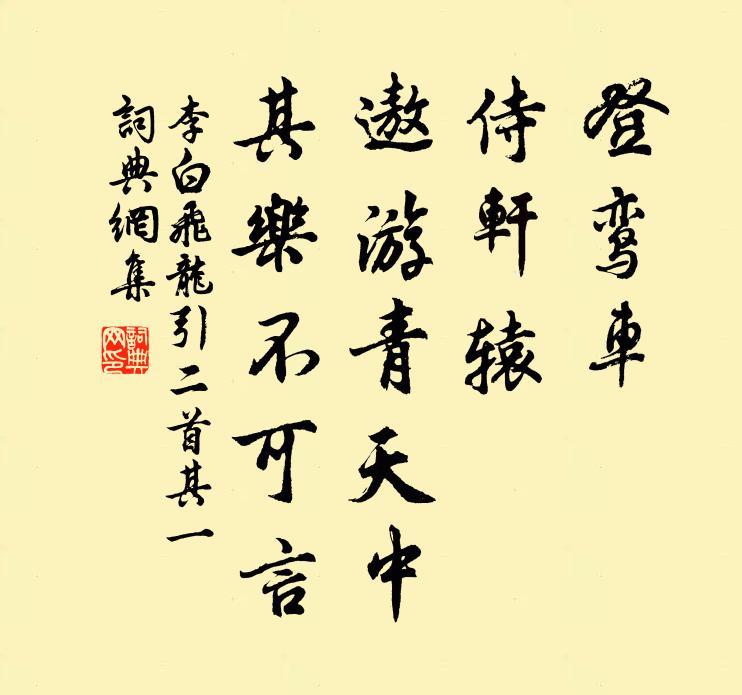 登鸾車
侍軒辕
遨游青天中
其樂不可言
李白飛龍引二首其一
詞典網集
詞典網印